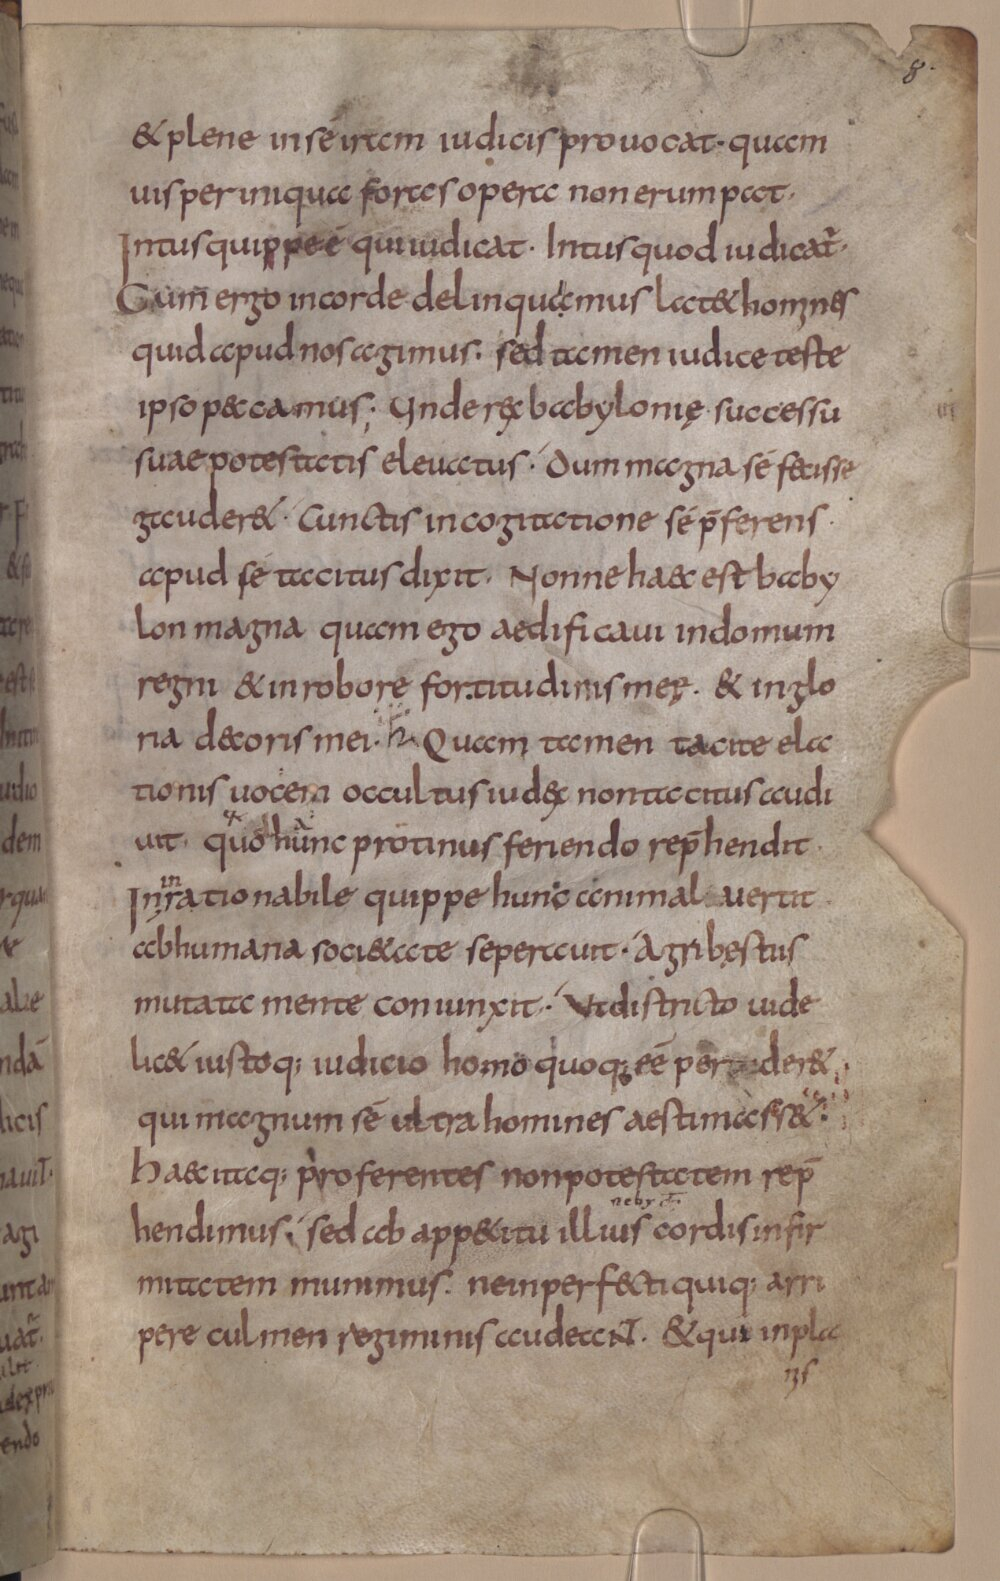 8.
& plene in sé iram iudicis prouocat· quam
uis per iniqua foras opera non erumpat·
Intus quippe é qui iudicat· Intus quod iudicať·
Cum̄ ergo in corde delinquimus lat& homines
quid apud nos agimus· sed tamen iudice teste
ipso peccamus; Unde rex babylonię successu
suae potestatis eleuatus· Dum magna sé fecisse
gauder&· Cunctis in cogitatione sé p̄ferens·
apud sé tacitus dixit· Nonne haec est baby
lon magna quam ego aedificaui in domum
regni & in robore fortitudinis meę· & in glo
ria decoris mei· h· Quam tamen tacite ela
tionis uocem occultus iudex non tacitus audi
uit· quo hunc protinus feriendo rep̄hendit·
in
Inrationabile quippe hunc animal uertit
ab humana soci&ate seperauit· Agri bęstiis
mutata mente coniunxit· Ut districto uide
lic& iustoq; iudicio homo quoq; éé perder&
qui magnum sé ultra homines aestimass&·
Haec itaq; proferentes non potestatem rep̄
hendimus· sed ab app&itu illius cordis infir
mitatem munimus· ne inperfecti quiq; arri
pere culmen regiminis audeaNT· & qui in pla
nis